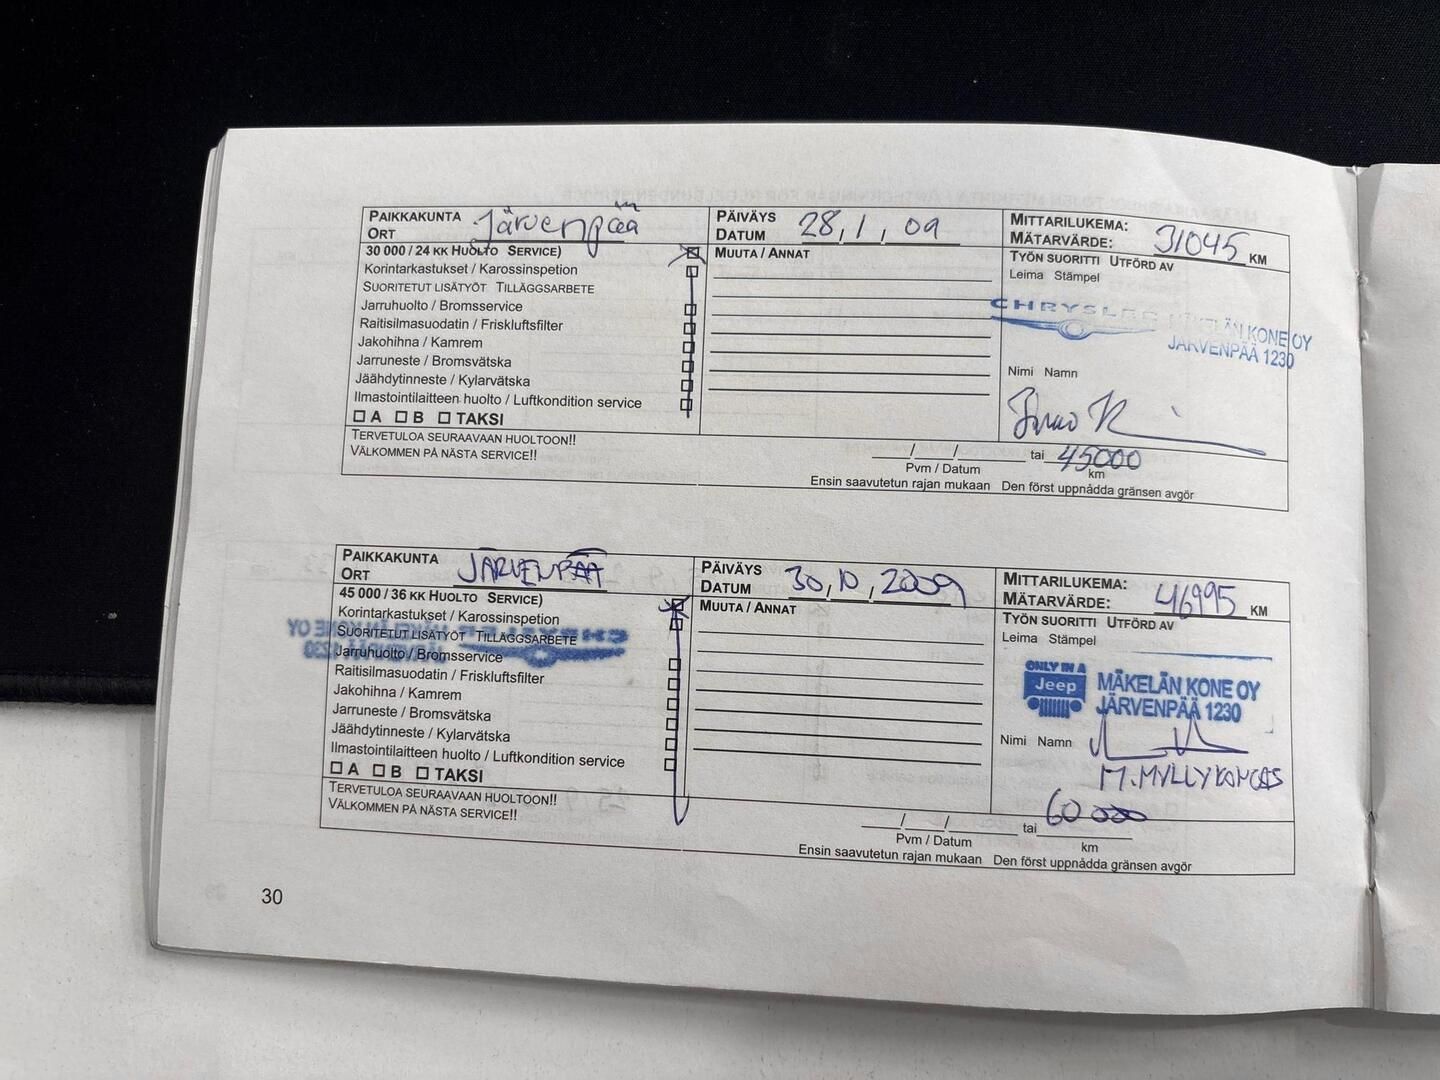 PAIKKAKUNTA Järvenpää
ORT
PÄIVÄYS 28,1, 09
DATUM
MITTARILUKEMA: 31045 KM
MÄTARVÄRDE:
30 000 / 24 KK HUOLTO SERVICE)
Korintarkastukset / Karossinspetion
SUORITETUT LISÄTYÖT TILLÄGGSARBETE
Jarruhuolto / Bromsservice
Raitisilmasuodatin / Friskluftsfilter
Jakohihna / Kamrem
Jarruneste / Bromsvätska
Jäähdytinneste / Kylarvätska
Ilmastointilaitteen huolto / Luftkondition service
A B TAKSI
MUUTA / ANNAT
TYÖN SUORITTI UTFÖRD AV
Leima Stämpel
CHRYSLER MÄKELÄN KONE OY
JÄRVENPÄÄ 1230
Nimi Namn
TERVETULOA SEURAAVAAN HUOLTOON!!
VÄLKOMMEN PÅ NÄSTA SERVICE!!
/ / tai 45000
Pvm / Datum km
Ensin saavutetun rajan mukaan Den först uppnådda gränsen avgör
PAIKKAKUNTA JÄRVENPÄÄ
ORT
PÄIVÄYS 30,10,2009
DATUM
MITTARILUKEMA: 46995 KM
MÄTARVÄRDE:
45 000 / 36 KK HUOLTO SERVICE)
Korintarkastukset / Karossinspetion
SUORITETUT LISÄTYÖT TILLÄGGSARBETE
Jarruhuolto / Bromsservice
Raitisilmasuodatin / Friskluftsfilter
Jakohihna / Kamrem
Jarruneste / Bromsvätska
Jäähdytinneste / Kylarvätska
Ilmastointilaitteen huolto / Luftkondition service
A B TAKSI
CHRYSLER MÄKELÄN KONE OY
JÄRVENPÄÄ 1230
MUUTA / ANNAT
TYÖN SUORITTI UTFÖRD AV
Leima Stämpel
ONLY IN A
Jeep
MÄKELÄN KONE OY
JÄRVENPÄÄ 1230
Nimi Namn
M. MYLLYKANGAS
TERVETULOA SEURAAVAAN HUOLTOON!!
VÄLKOMMEN PÅ NÄSTA SERVICE!!
/ / tai 60 000
Pvm / Datum km
Ensin saavutetun rajan mukaan Den först uppnådda gränsen avgör
30